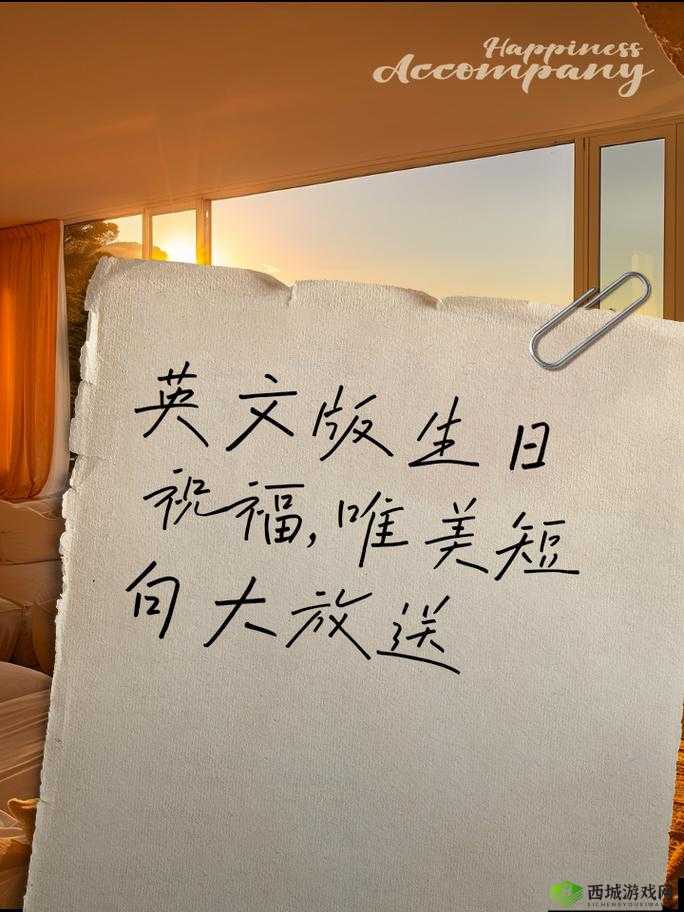 Happiness
Accompany
英文版生日
祝福,唯美短
句大放送
西城游戏网
XICHENGYOUXIWANG